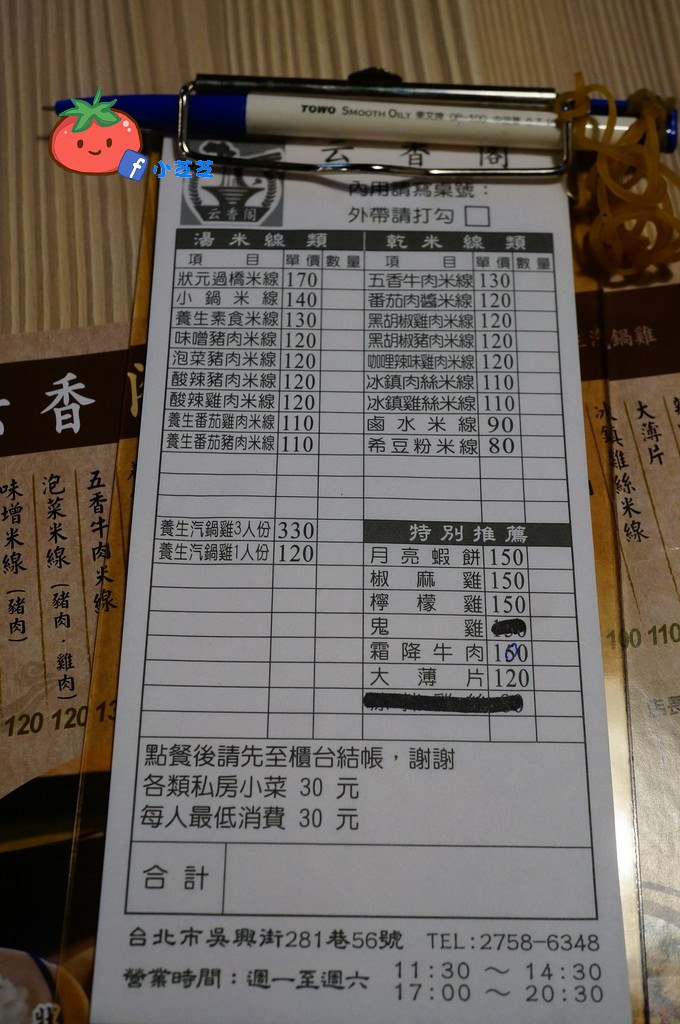 TOWO SMOOTH OILY 東文牌 OP-100
f 小芝芝
云香閣
云香閣
內用請寫桌號：
外帶請打勾
湯米線類
項目 單價 數量
狀元過橋米線 170
小鍋米線 140
養生素食米線 130
味噌豬肉米線 120
泡菜豬肉米線 120
酸辣豬肉米線 120
酸辣雞肉米線 120
養生番茄雞肉米線 110
養生番茄豬肉米線 110
養生汽鍋雞3人份 330
養生汽鍋雞1人份 120
乾米線類
項目 單價 數量
五香牛肉米線 130
番茄肉醬米線 120
黑胡椒雞肉米線 120
黑胡椒豬肉米線 120
咖哩辣味雞肉米線 120
冰鎮肉絲米線 110
冰鎮雞絲米線 110
鹵水米線 90
希豆粉米線 80
特別推薦
月亮蝦餅 150
椒麻雞 150
檸檬雞 150
鬼雞
霜降牛肉 160
大薄片 120
點餐後請先至櫃台結帳，謝謝
各類私房小菜 30 元
每人最低消費 30 元
合計
台北市吳興街281巷56號 TEL:2758-6348
營業時間：週一至週六 11:30 ～ 14:30
17:00 ～ 20:30
香
五香牛肉米線
泡菜米線（豬肉．雞肉） 120
味增米線（豬肉） 120
汽鍋雞
大薄片 110
冰鎮雞絲米線 100